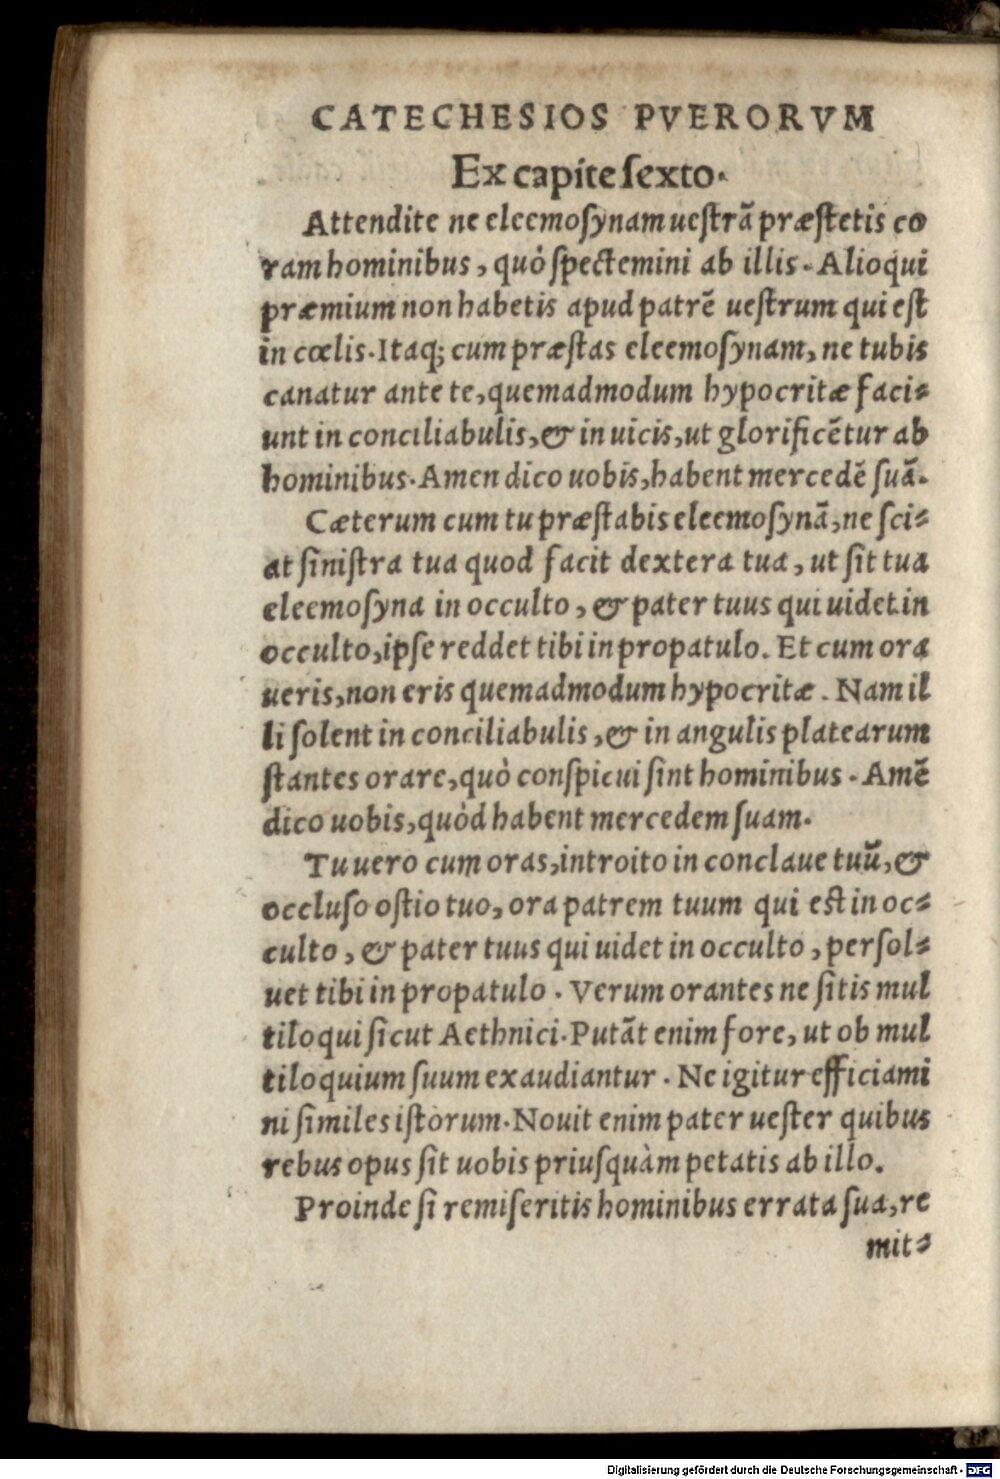 CATECHESIOS PVERORVM
Ex capite ſexto.
Attendite ne eleemoſynam ueſtrã præſtetis co
ram hominibus, quò ſpectemini ab illis. Alioqui
præmium non habetis apud patrẽ ueſtrum qui eſt
in cœlis. Itaq; cum præſtas eleemoſynam, ne tubis
canatur ante te, quemadmodum hypocritæ faci-
unt in conciliabulis, & in uicis, ut glorificẽtur ab
hominibus. Amen dico uobis, habent mercedẽ ſuã.
Cæterum cum tu præſtabis eleemoſynã, ne ſci-
at ſiniſtra tua quod facit dextera tua, ut ſit tua
eleemoſyna in occulto, & pater tuus qui uidet in
occulto, ipſe reddet tibi in propatulo. Et cum ora
ueris, non eris quemadmodum hypocritæ. Nam il
li ſolent in conciliabulis, & in angulis platearum
ſtantes orare, quò conſpicui ſint hominibus. Amẽ
dico uobis, quòd habent mercedem ſuam.
Tu uero cum oras, introito in conclaue tuũ, &
occluſo oſtio tuo, ora patrem tuum qui est in oc-
culto, & pater tuus qui uidet in occulto, perſol-
uet tibi in propatulo. Verum orantes ne ſitis mul
tiloqui ſicut Aethnici. Putãt enim fore, ut ob mul
tiloquium ſuum exaudiantur. Ne igitur efficiami
ni ſimiles iſtorum. Nouit enim pater ueſter quibus
rebus opus ſit uobis priuſquàm petatis ab illo.
Proinde ſi remiſeritis hominibus errata ſua, re
mit-
Digitalisierung gefördert durch die Deutsche Forschungsgemeinschaft - DFG